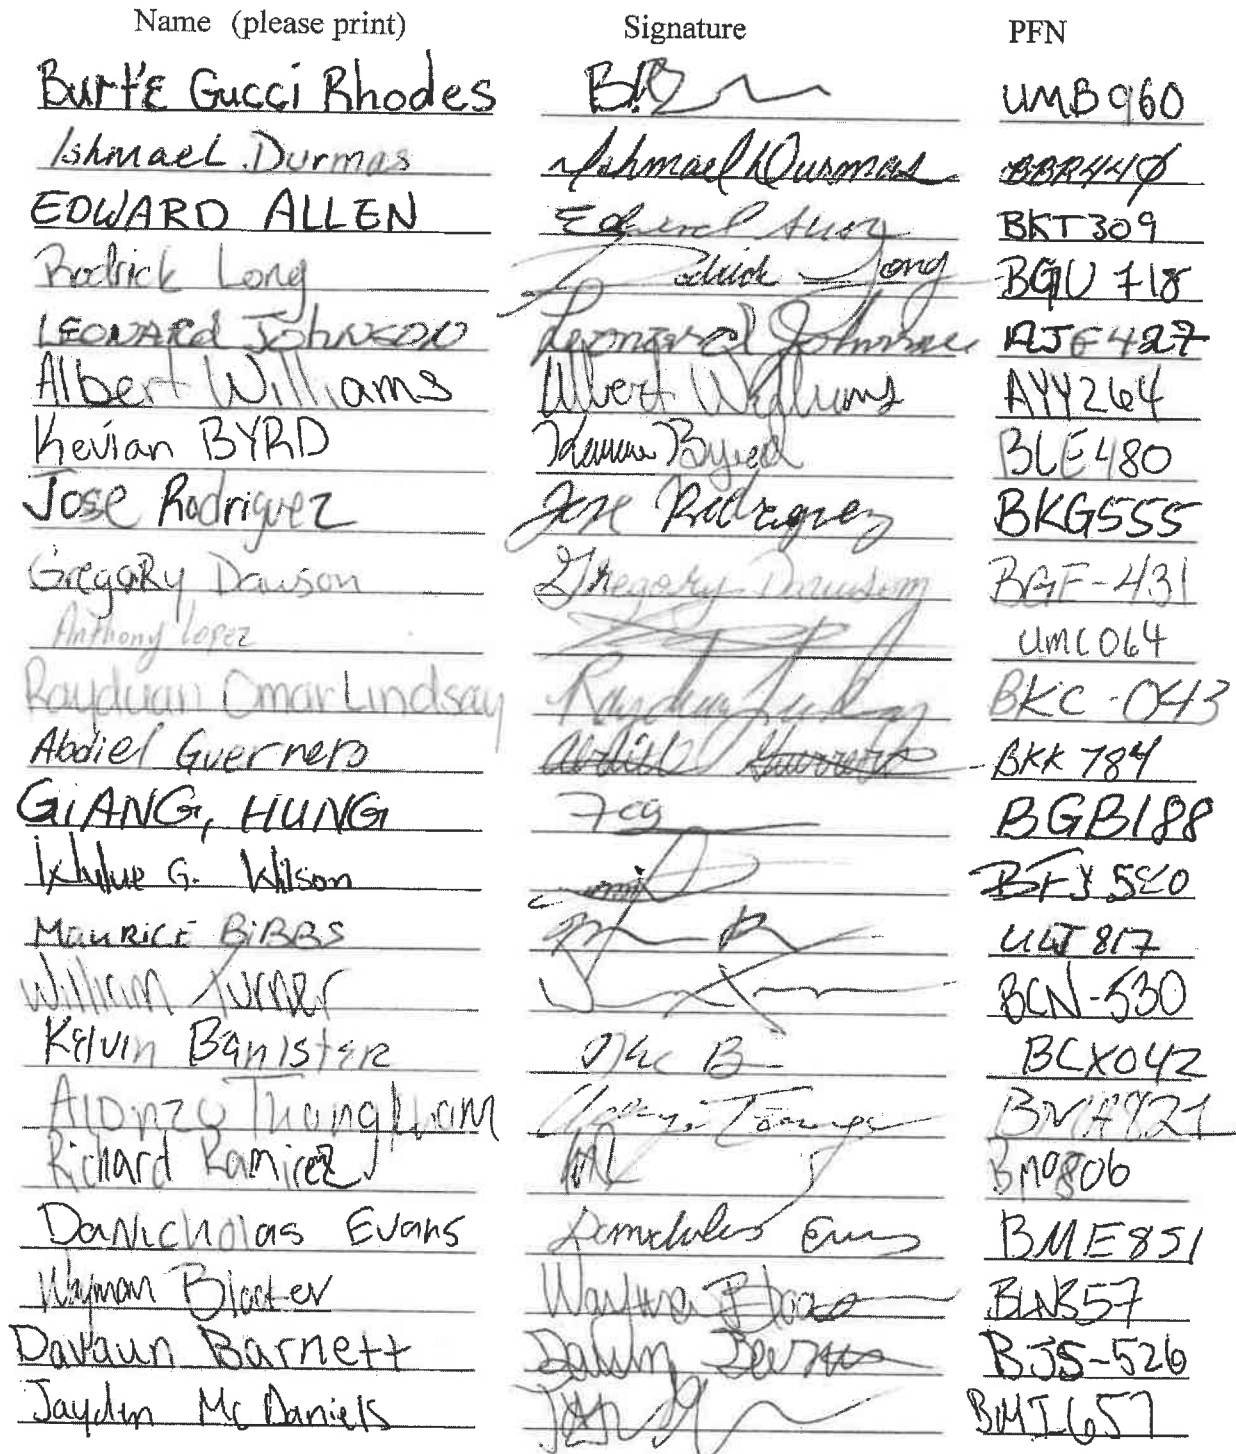 Name (please print) Signature PFN
Burt'E Gucci Rhodes UMB960
Ishmael Durmas Ishmael Durmas BBR440
EDWARD ALLEN Edward Allen BKT309
Rodrick Long Rodrick Long BGU 718
LEONARD JOHNSON Leonard Johnson 427
Albert Williams Albert Williams AYY264
Kevian BYRD Byrd BLE480
Jose Rodriguez Jose Rodriguez BKG555
GregoRy Dawson Gregory Dawson BGF-431
Anthony Lopez UMC064
Rayduan Omar Lindsay Rayduan Lindsay BKC-043
Abdiel Guerrero Abdiel Guerrero BKK 784
GIANG, HUNG BGB188
G. Wilson
MAURICE BiBBS 817
William Turner BCN-530
Kelvin Banister B BCX042
Alonzo Thongkham
Richard Ramirez BMO806
DaNicholas Evans Danicholas Evans BME851
Wayman
Davaun Barnett BJS-526
Jayden McDaniels BMI657